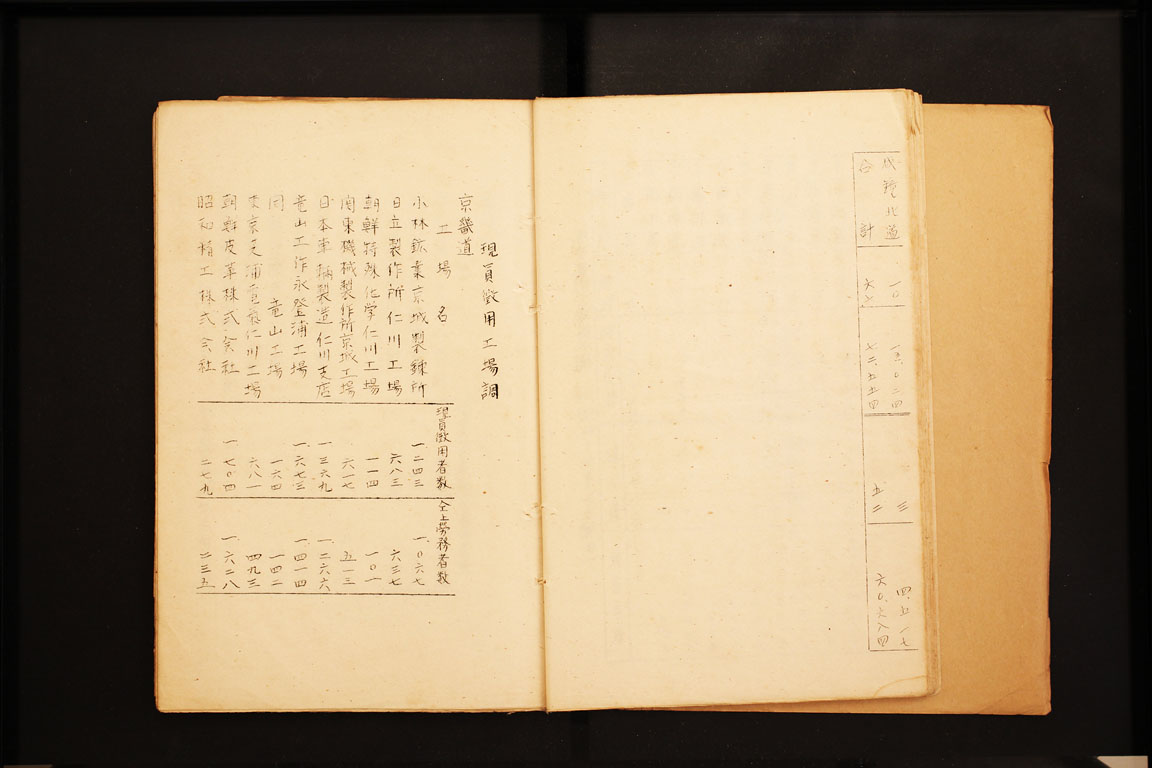 咸鏡北道　一〇　一三、〇二四　三　四、五一七
合計　六〇、六八四
現員徴用工場調
京畿道
工場名　現員徴用者数　仝上労務者数
小林鉱業京城製錬所　一、二四三　一、〇六七
日立製作所仁川工場　六八三　六三七
朝鮮特殊化学仁川工場　一一四　一〇一
関東機械製作所京城工場　六一七　五一三
日本車輌製造仁川支店　一、三六九　一、二六六
竜山工作永登浦工場　一、六七三　一、四一四
同　竜山工場　一六四　一四二
東京芝浦電気仁川工場　六八一　四九三
朝鮮皮革株式会社　一、七〇四　一、六二八
昭和精工株式会社　二七九　二三五